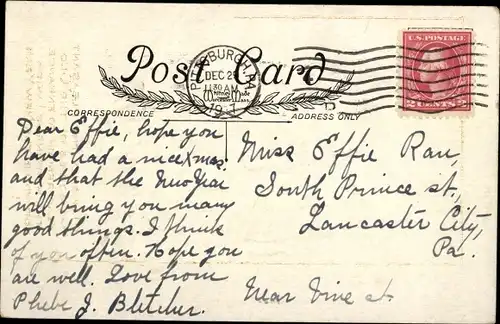 Post Card
PITTSBURGH, PA.
DEC 2
11 30 AM
19
U.S. POSTAGE
2 CENTS 2
CORRESPONDENCE
ADDRESS ONLY
Dear Effie, hope you
have had a nice Xmas.
and that the New Year
will bring you many
good things. I think
of you often. Hope you
are well. Love from
Phebe J. Bletcher.
Miss Effie Rau,
South Prince st,
Lancaster City,
Pa.
Near Vine st